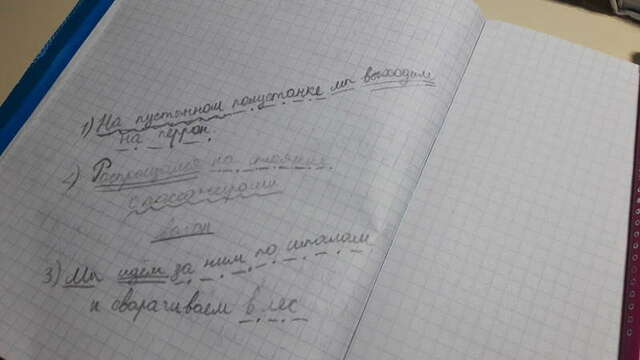 1) На пустынном полустанке мы выходим
на перрон.
2) Распрощаемся на стоянке
с пассажирами
3) Мы идём за ним по шпалам
и сварачиваем в лес